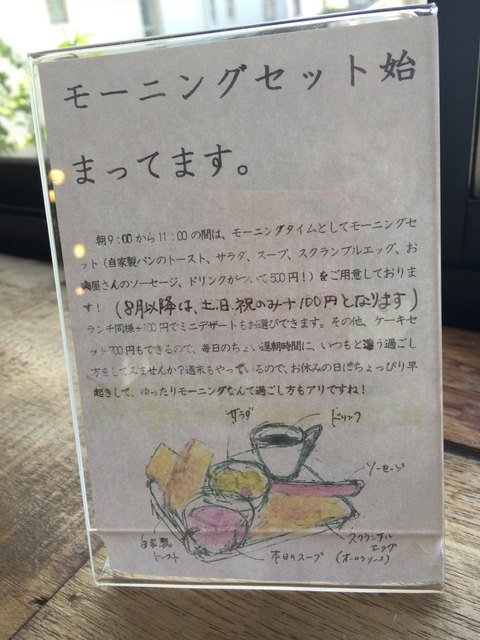 モーニングセット始
まってます。
朝9:00から11:00の間は、モーニングタイムとしてモーニングセ
ット(自家製パンのトースト、サラダ、スープ、スクランブルエッグ、お
肉屋さんのソーセージ、ドリンクがついて500円!)をご用意しておりま
す! (8月以降は、土.日.祝のみ+100円となります)
ランチ同様+100円でミニデザートもお選びできます。その他、ケーキセ
ット700円もできるので、毎日のちょい遅朝時間に、いつもと違う過ごし
方をしてみませんか?週末もやっているので、お休みの日にちょっぴり早
起きして、ゆったりモーニングなんて過ごし方もアリですね!
サラダ ドリンク
ソーセージ
自家製
トースト
本日のスープ
スクランブル
エッグ
(オーロラソース)